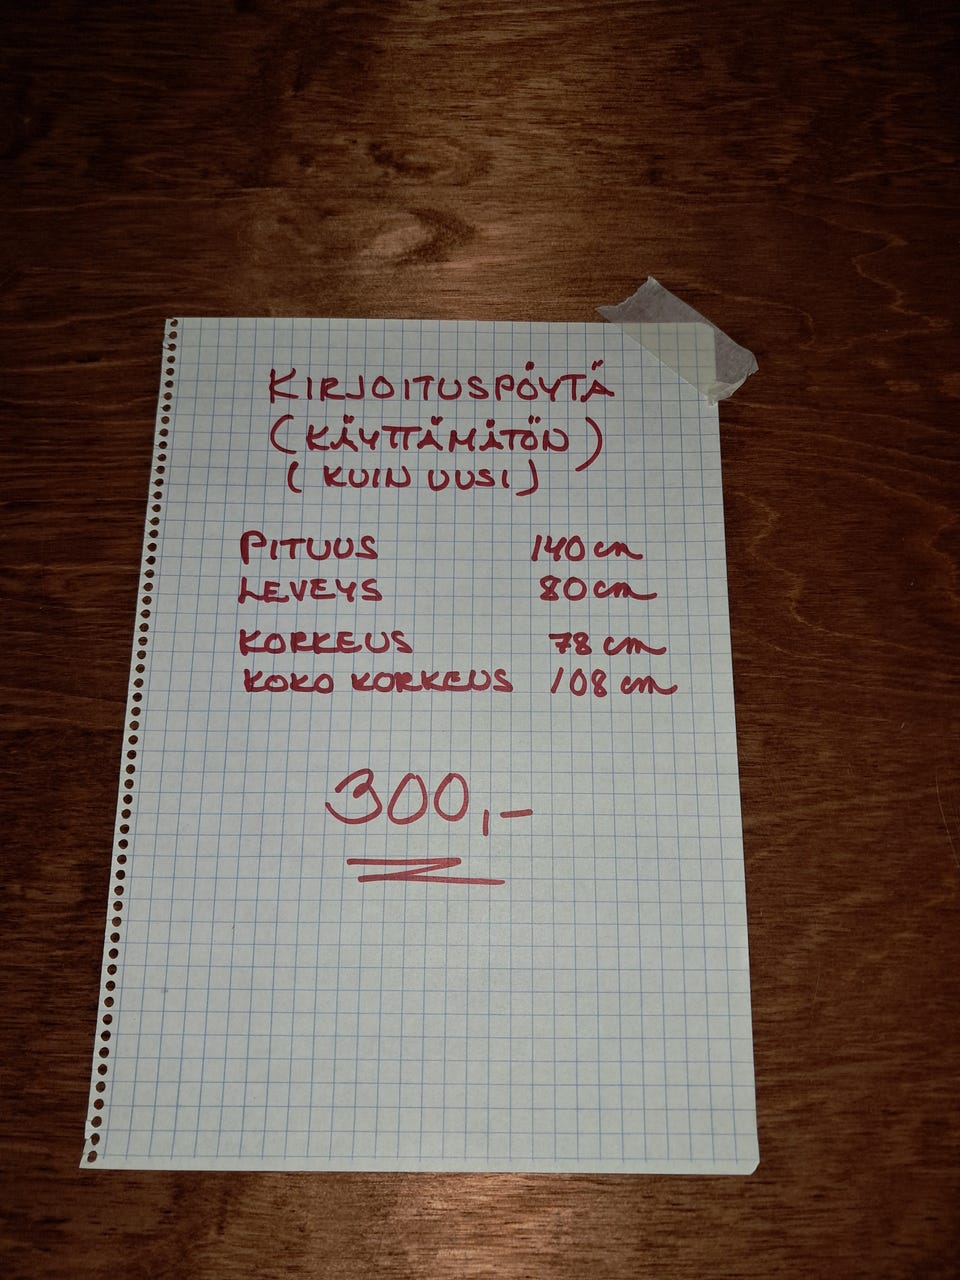 KIRJOITUSPÖYTÄ
(KÄYTTÄMÄTÖN)
(KUIN UUSI)
PITUUS 140 cm
LEVEYS 80 cm
KORKEUS 78 cm
KOKO KORKEUS 108 cm
300,-